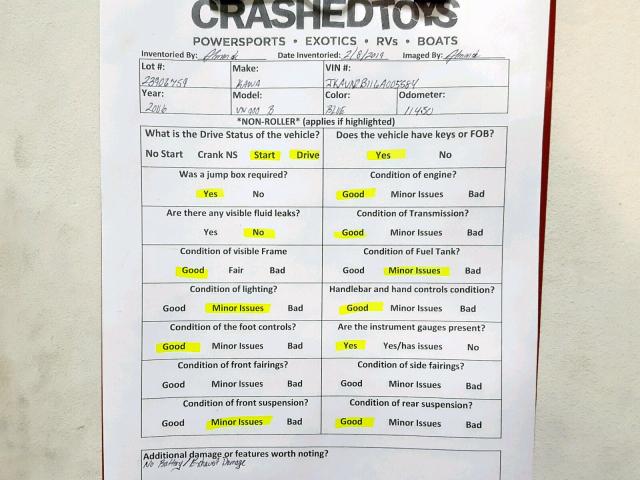 CRASHEDTOYS
POWERSPORTS • EXOTICS • RVs • BOATS
Inventoried By: Date Inventoried: 2/8/2019 Imaged By:
Lot #: Make: VIN #:
23906759 KAWA JKAVN2B116A005584
Year: Model: Color: Odometer:
2006 VN 900 B BLUE 11450
*NON-ROLLER* (applies if highlighted)
What is the Drive Status of the vehicle? Does the vehicle have keys or FOB?
No Start Crank NS Start Drive Yes No
Was a jump box required? Condition of engine?
Yes No Good Minor Issues Bad
Are there any visible fluid leaks? Condition of Transmission?
Yes No Good Minor Issues Bad
Condition of visible Frame Condition of Fuel Tank?
Good Fair Bad Good Minor Issues Bad
Condition of lighting? Handlebar and hand controls condition?
Good Minor Issues Bad Good Minor Issues Bad
Condition of the foot controls? Are the instrument gauges present?
Good Minor Issues Bad Yes Yes/has issues No
Condition of front fairings? Condition of side fairings?
Good Minor Issues Bad Good Minor Issues Bad
Condition of front suspension? Condition of rear suspension?
Good Minor Issues Bad Good Minor Issues Bad
Additional damage or features worth noting?
No Battery/Exhaust Damage